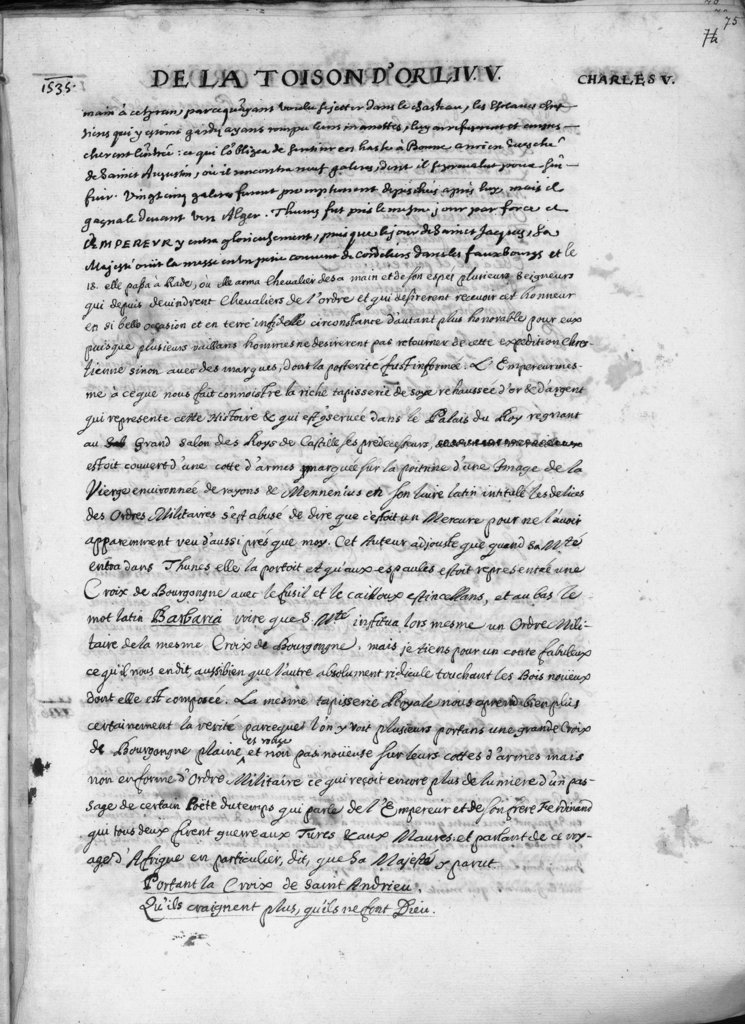 75
74
1535.
DE LA TOISON D'OR LIV. V.
CHARLES V.
main à ce tyran, parcequ'ayans voulu se jetter dans le chasteau, les Esclaves chre-
stiens qui y estoient gardez ayans rompu leurs manottes, luy en refuserent et empes-
cherent l'entrée: ce qui l'obligea de s'enfuir en haste à Bonne ancien Evesché
de Sainct Augustin, où il rencontra neuf galeres, dont il se prevalut pour s'en-
fuir. Vingt cinq galeres furent promptement depeschées après luy mais il
gagna le devant vers Alger. Thunes fut pris le mesme jour par force et
l'EMPEREUR y entra glorieusement, puis que le jour de Sainct Jacques, Sa
Majesté ouit la messe en un petit couvent de cordeliers dans les fauxbourgs et le
18. elle passa à Rade, où elle arma Chevalier de sa main et de son espée plusieurs Seigneurs
qui depuis devindrent Chevaliers de l'ordre et qui desirerent recevoir cet honneur
en si belle occasion et en terre infidelle circonstance d'autant plus honorable pour eux
puisque plusieurs vaillans hommes ne desirerent pas retourner de cette expedition Chres-
tienne sinon avec des marques, dont la posterité fust informée. L'Empereur mes-
me à ce que nous fait connoistre la riche tapisserie de soye rehaussée d'or & d'argent
qui represente cette Histoire & qui est conservée dans le Palais du Roy regnant
au Grand salon des Roys de Castille ses predecesseurs,
estoit couvert d'une cotte d'armes marquée sur la poitrine d'une Image de la
Vierge environnée de rayons & Mennenius en son livre latin intitulé les delices
des Ordres Militaires s'est abusé de dire que c'estoit un Mercure pour ne l'avoir
apparemment veu d'aussi près que moy. Cet Auteur adjouste que quand Sa Mté
entra dans Thunes elle la portoit et qu'aux espaules estoit representée une
Croix de Bourgongne avec le fusil et le cailloux estincellans, et au bas le
mot latin Barbaria voire que S. Mté institua lors mesme un Ordre Mili-
taire de la mesme Croix de Bourgongne. mais je tiens pour un conte fabuleux
ce qu'il nous en dit, aussi bien que l'autre absolument ridicule touchant les Bois noueux
dont elle est composée. La mesme tapisserie Royale nous aprend bien plus
certainement la verité parceque l'on y voit plusieurs portans une grande Croix
de Bourgongne plaine et rouge et non pas noüeuse sur leurs cottes d'armes mais
non en forme d'Ordre Militaire ce qui reçoit encore plus de lumiere d'un pas-
sage de certain Poëte du temps qui parle de l'Empereur et de son frere Ferdinand
qui tous deux firent guerre aux Turcs & aux Maures. et parlant de ce voy-
age d'Afrique en particulier, dit, que Sa Majesté y parut
Portant la Croix de Saint Andrieu,
Qu'ils craignent plus, qu'ils ne font Dieu.